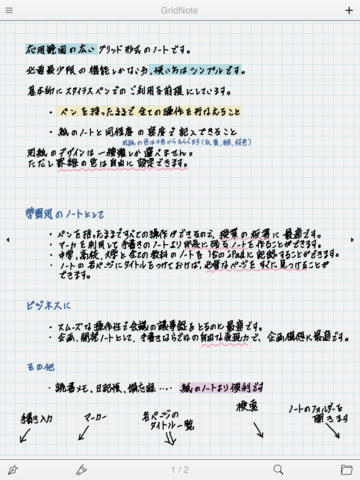 GridNote
応用範囲の広いグリッド形式のノートです。
必要最少限の機能しかないぶん、使い方はシンプルです。
基本的にスタイラスペンでのご利用を前提にしています。
・ペンを持ったままで全ての操作を行なえること
・紙のノートと同程度の密度で記入できること
用紙のデザインは一種類しか選べません。
ただし罫線の色は自由に設定できます。
学習用のノートとして
・ペンを持ったまますべての操作ができるので、授業の板書に最適です。
・マーカを利用して手書きのノートより
ノートを作ることができます。
・中学、高校、大学と全ての教科のノートを1つのiPadに記録することができます。
・ノートの各ページにタイトルをつけておけば、必要なページをすぐに見つけることが
できます。
ビジネスに
・スムーズな操作性で会議の議事録をとるのに最適です。
・企画、開発ノートとして、手書きならではの自由な表現力で、企画構想に最適です。
その他
・読書メモ、日記帳、備忘録‥‥ 紙のノートより便利です
手書き入力
マーカー
各ページの
タイトル一覧
検索
ノートのフォルダーを
開きます
1 / 2